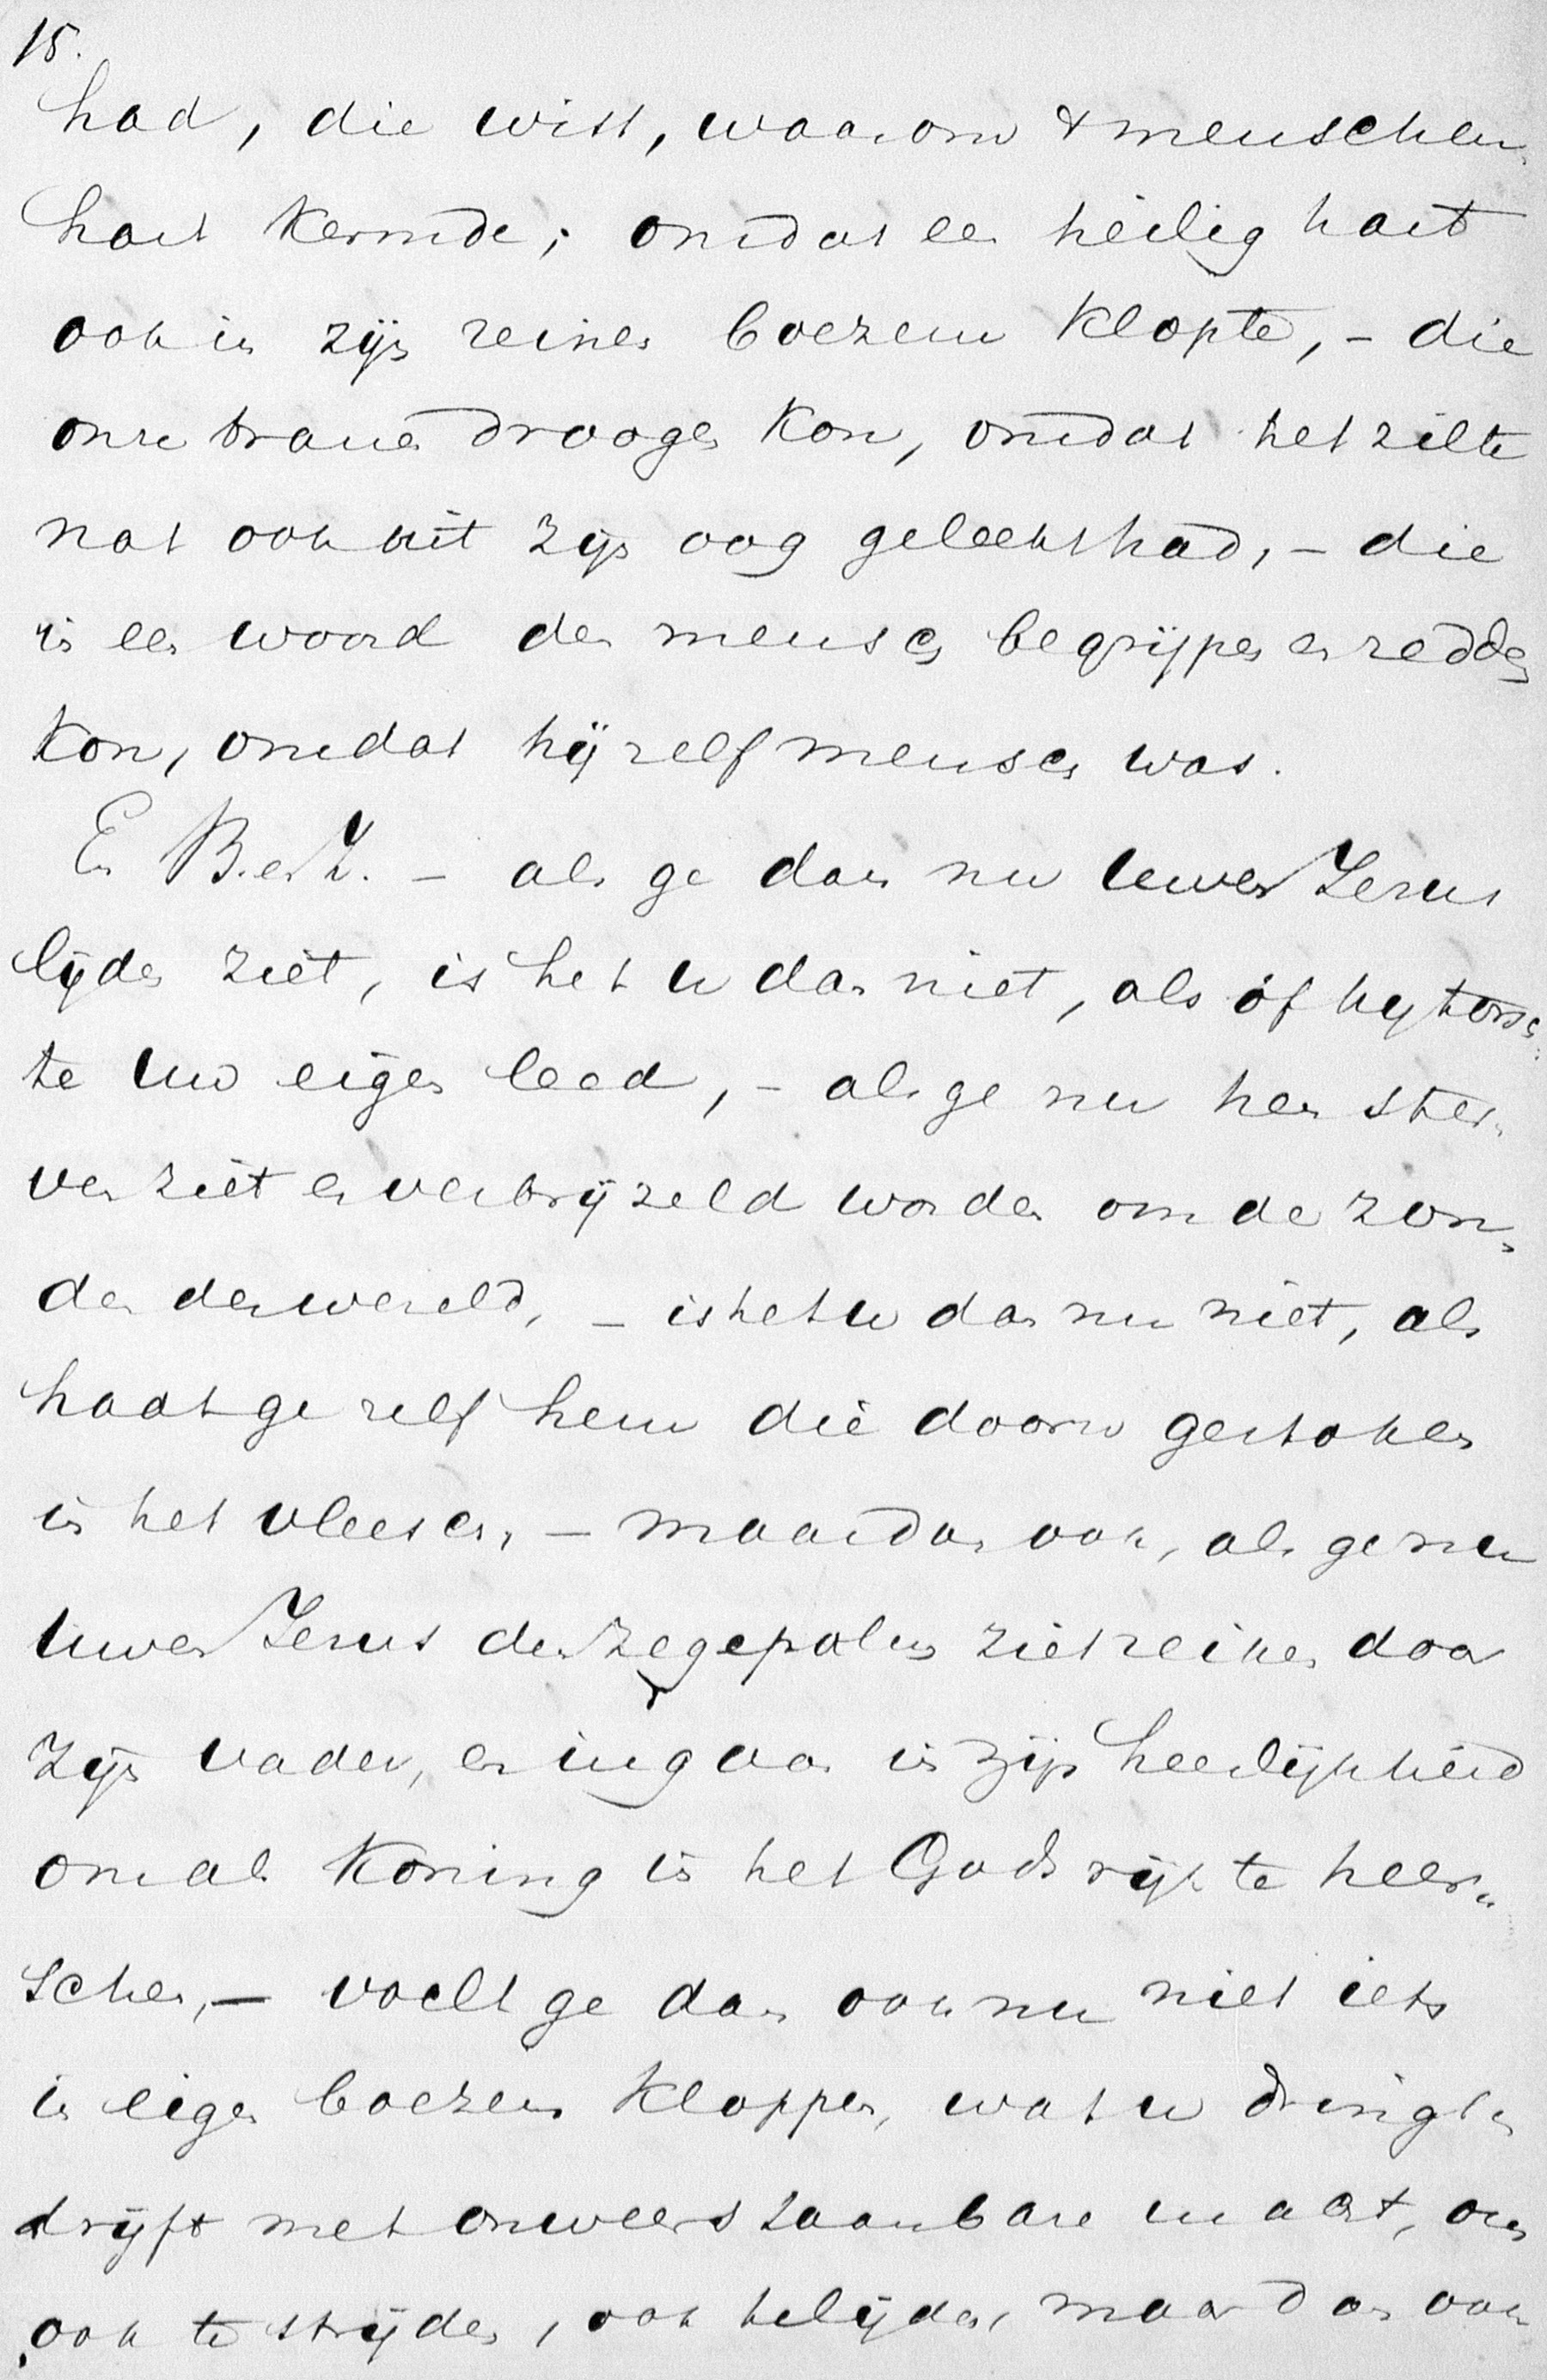 15.
had, die wist, waarom 't menschen
hart kermde; omdat een heilig hart
ook in zijn reinen boezem klopte, – die
onze tranen droogen kon, omdat het zilte
nat ook uit zijn oog gelekt had, – die
in een woord den mensch begrijpen en redden
kon, omdat hij zelf mensch was.
En B. en Z. – als ge dan nu uwen Jezus
lijden ziet, is het u dan niet, als of hij torsch-
te uw eigen leed, – als ge nu hem ster-
ven ziet en verbrijzeld worden om de zon-
den der wereld, – is het u dan nu niet, als
hadt ge zelf hem die doorn gestoken
in het vleesch, – maar dan ook, als ge nu
uwen Jezus den zegepalm ziet reiken door
zijn vader, en ingaan in zijn heerlijkheid
om als Koning in het Godsrijk te heer-
schen, – voelt ge dan ook nu niet iets
in eigen boezem kloppen, wat u dringt en
drijft met onweerstaanbare macht, om
ook te strijden, ook te lijden, maar dan ook